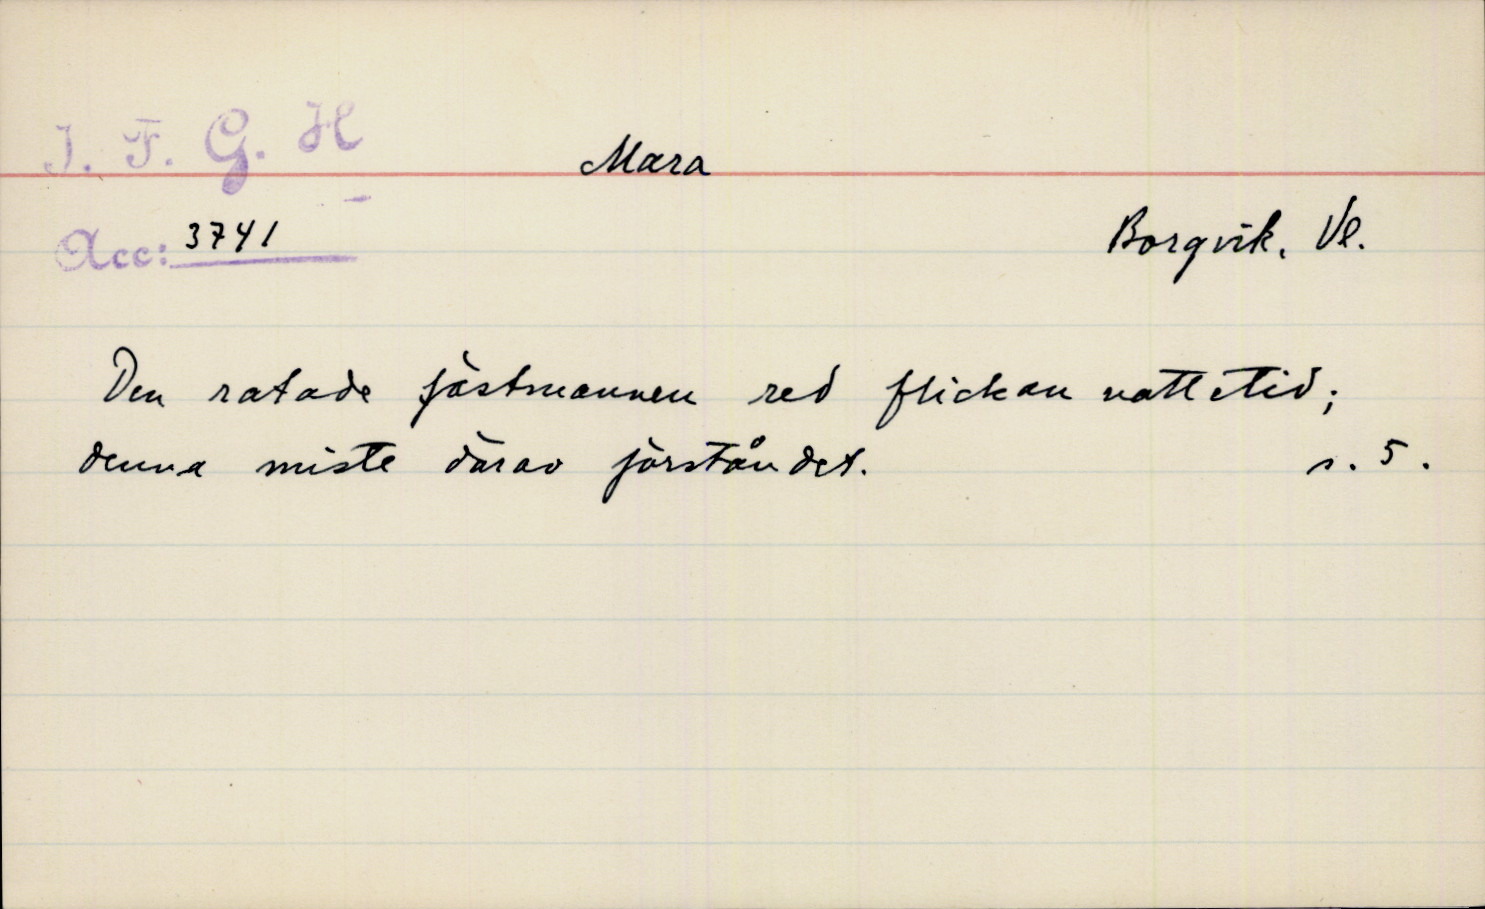 I. F. G. H
Mara
Acc: 3741
Borgvik, Vl.
Den ratade fästmannen red flickan nattetid;
denna miste därav förståndet. s. 5.